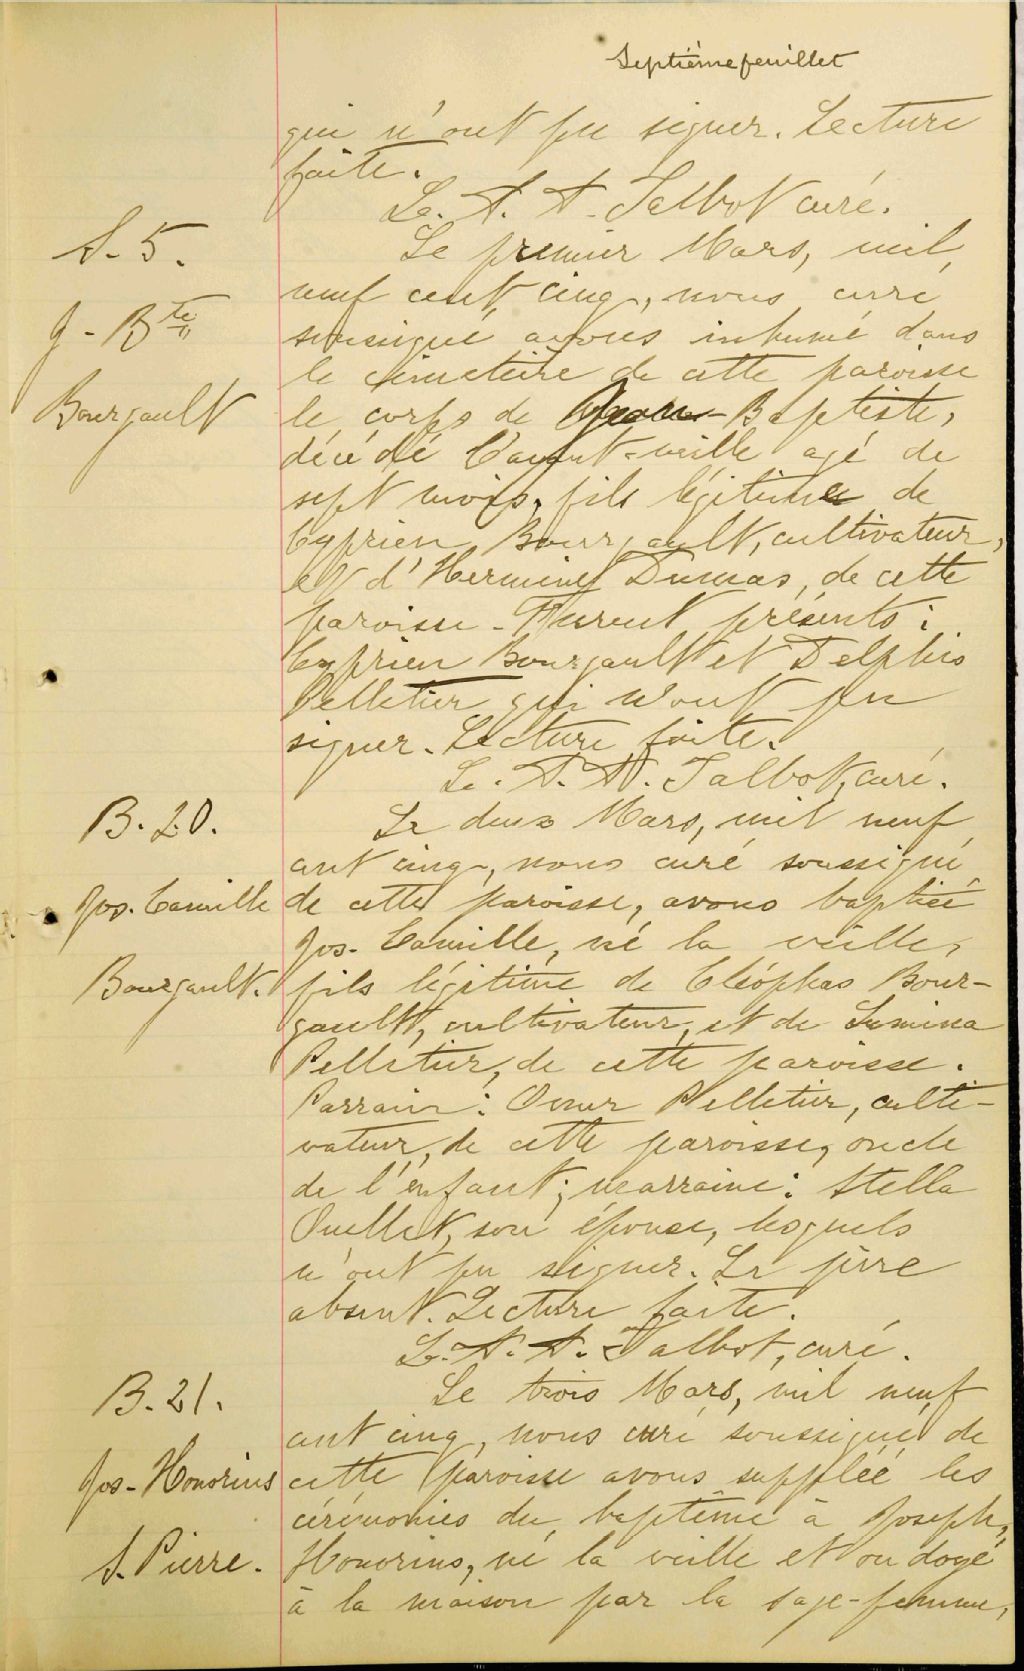 Septième feuillet
qui n'ont pu signer. Lecture
faite.
L. A. A. Talbot curé.
S. 5.
J-Bte
Bourgault
Le premier Mars, mil
neuf cent cinq, nous curé
soussigné avons inhumé dans
le cimetière de cette paroisse
le corps de Jean-Baptiste,
décédé l'avant-veille agé de
sept mois, fils légitime de
Cyprien Bourgault, cultivateur,
et d'Hermine Dumas, de cette
paroisse. Furent présents:
Cyprien Bourgault et Delphis
Pelletier qui n'ont pu
signer. Lecture faite.
L. A. A. Talbot, curé.
B. 20.
Jos. Camille
Bourgault.
Le deux Mars, mil neuf
cent cinq, nous curé soussigné
de cette paroisse, avons baptisé
Jos. Camille, né la veille,
fils légitime de Cléophas Bour-
gault, cultivateur, et de Lumina
Pelletier, de cette paroisse.
Parrain: Omer Pelletier, culti-
vateur, de cette paroisse, oncle
de l'enfant; marraine: Stella
Ouellet, son épouse, lesquels
n'ont pu signer. Le père
absent. Lecture faite.
L. A. A. Talbot, curé.
B. 21.
Jos-Honorius
S. Pierre.
Le trois Mars, mil neuf
cent cinq, nous curé soussigné de
cette paroisse avons suppléé les
cérémonies du baptême à Joseph,
Honorius, né la veille et ondoyé
à la maison par la sage-femme,